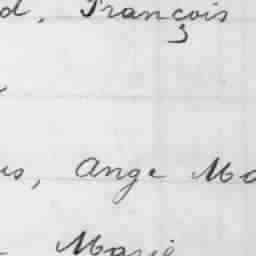 d. François
us, Ange Ma
Marie